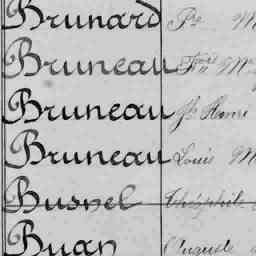 Brunard Pre M
Bruneau Fçois M
Bruneau Jh Henri
Bruneau Louis M
Busnel Théophile
Buan Auguste